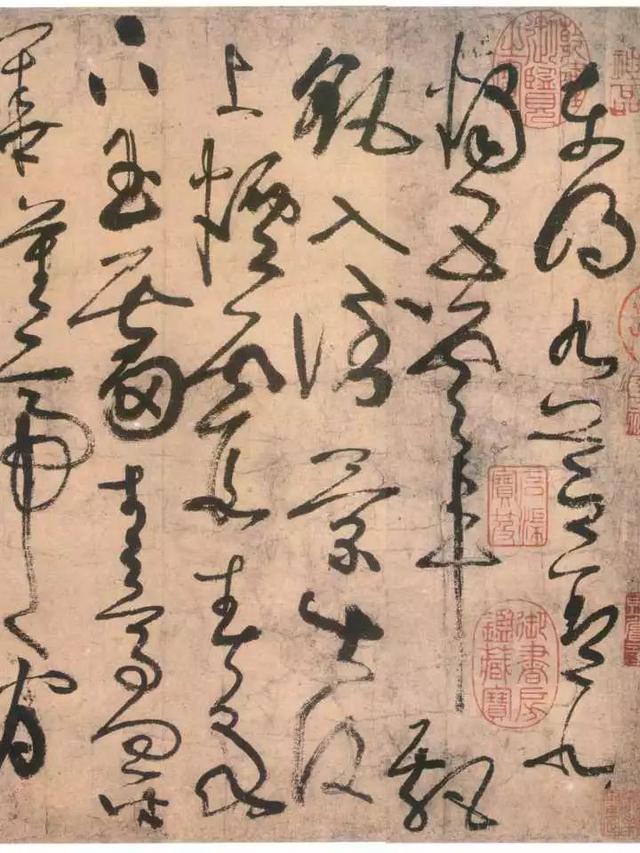 神品
東明九芝蓋北
燭五雲車飄
飖入倒景出沒
上煙霞春泉
下玉霤青鳥向金
華漢帝看
乾隆御覽之寶
石渠寶笈
御書房鑑藏寶